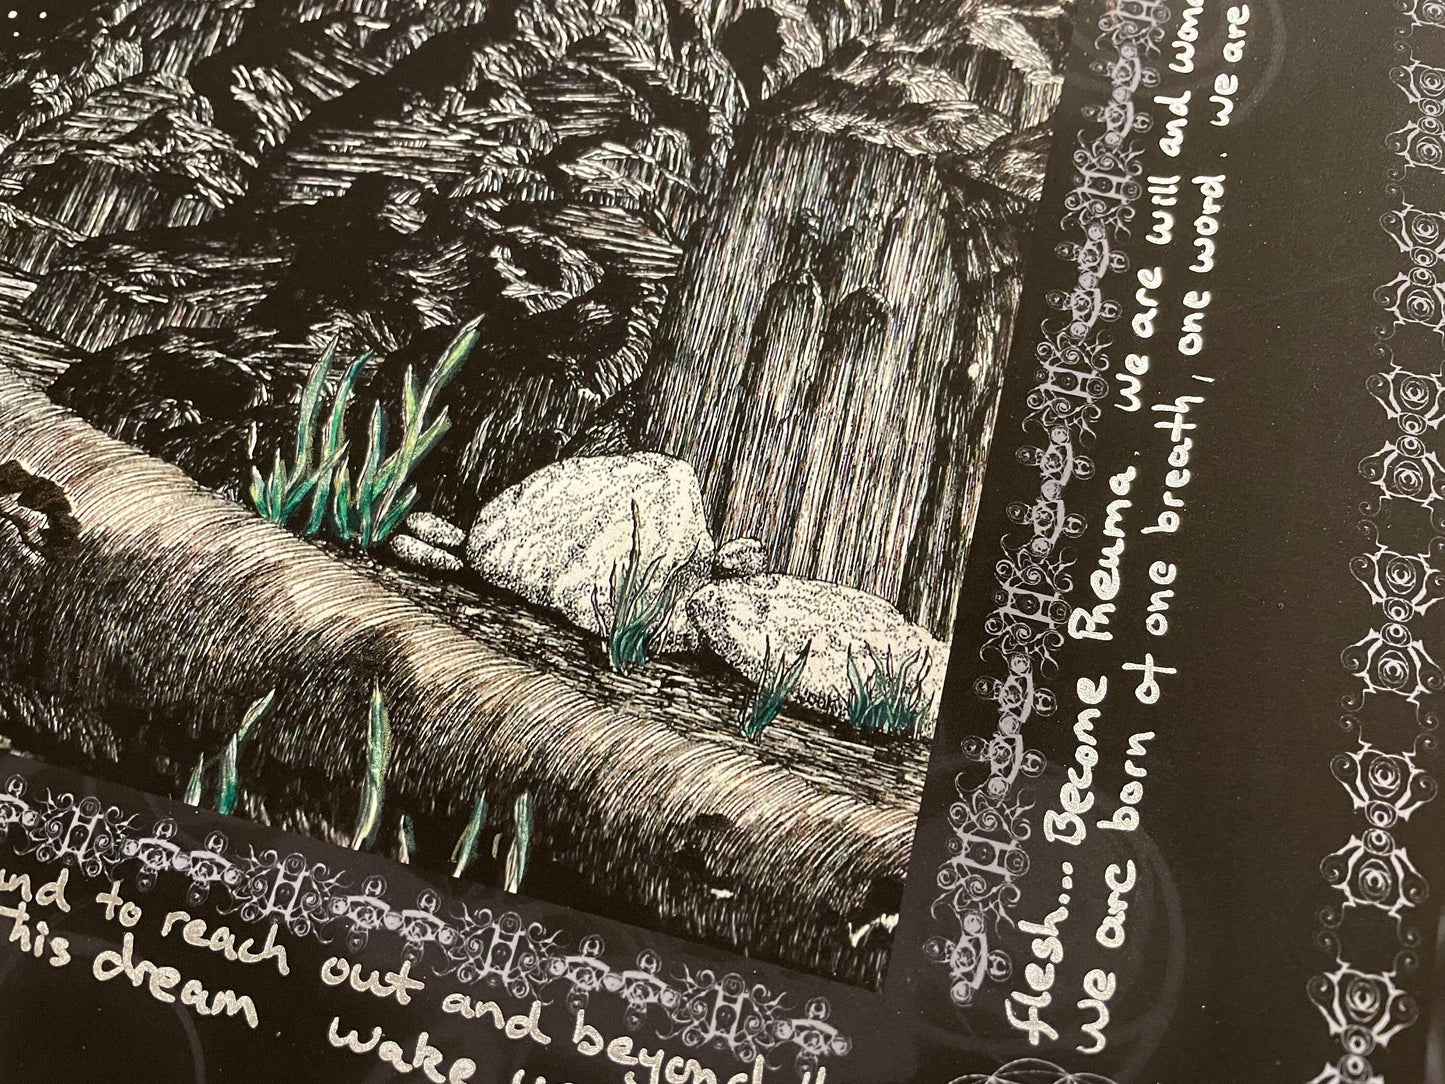 and to reach out and beyond !!
This dream wake
flesh... Become Pneuma. We are will and
we are born of one breath, one word. we are